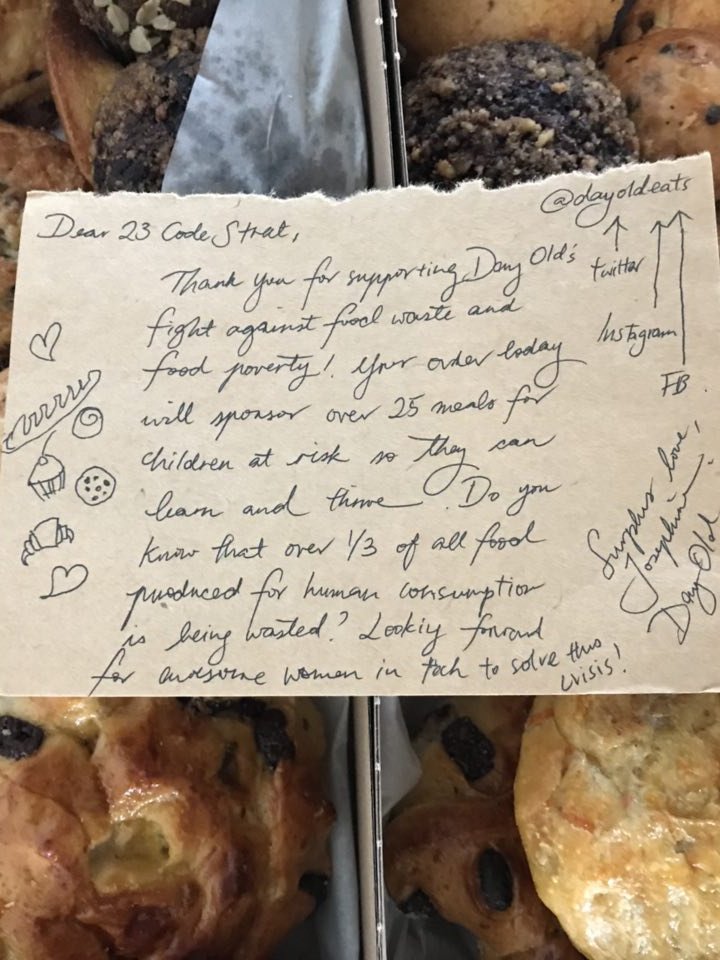 @dayoldeats
Dear 23 Code Strat,
Thank you for supporting Day Old's
twitter
fight against food waste and
Instagram
food poverty! Your order today
FB
will sponsor over 25 meals for
children at risk so they can
learn and thrive. Do you
know that over 1/3 of all food
produced for human consumption
is being wasted? Looking forward
for awesome women in tech to solve this
crisis!
Surplus love,
Josephine
Day Old